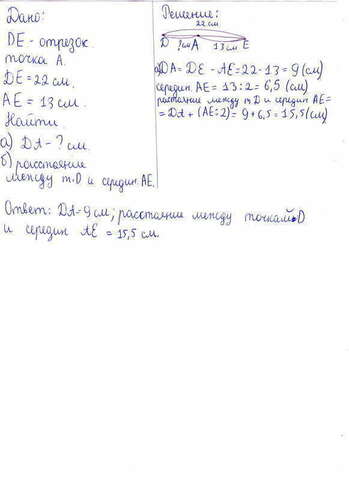 Дано:
DE - отрезок.
точка A.
DE = 22 см.
AE = 13 см.
Найти
а) DA - ? см.
б) расстояние
между т.D и середин. AE.
Решение:
22 см
D ?см A 13 см E
а) DA = DE - AE = 22 - 13 = 9 (см)
середин. AE = 13 : 2 = 6,5 (см)
расстояние между т.D и середин AE =
= DA + (AE:2) = 9 + 6,5 = 15,5 (см)
Ответ: DA = 9 см; расстояние между точками D
и середин AE = 15,5 см.